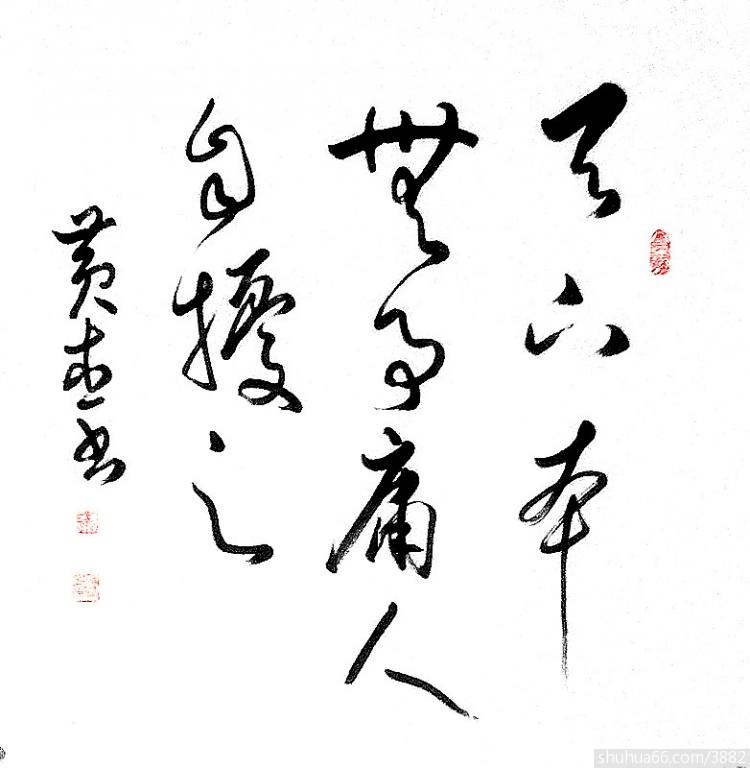 天下本
無事庸人
自擾之
黃 書
shuhua66.com/3882